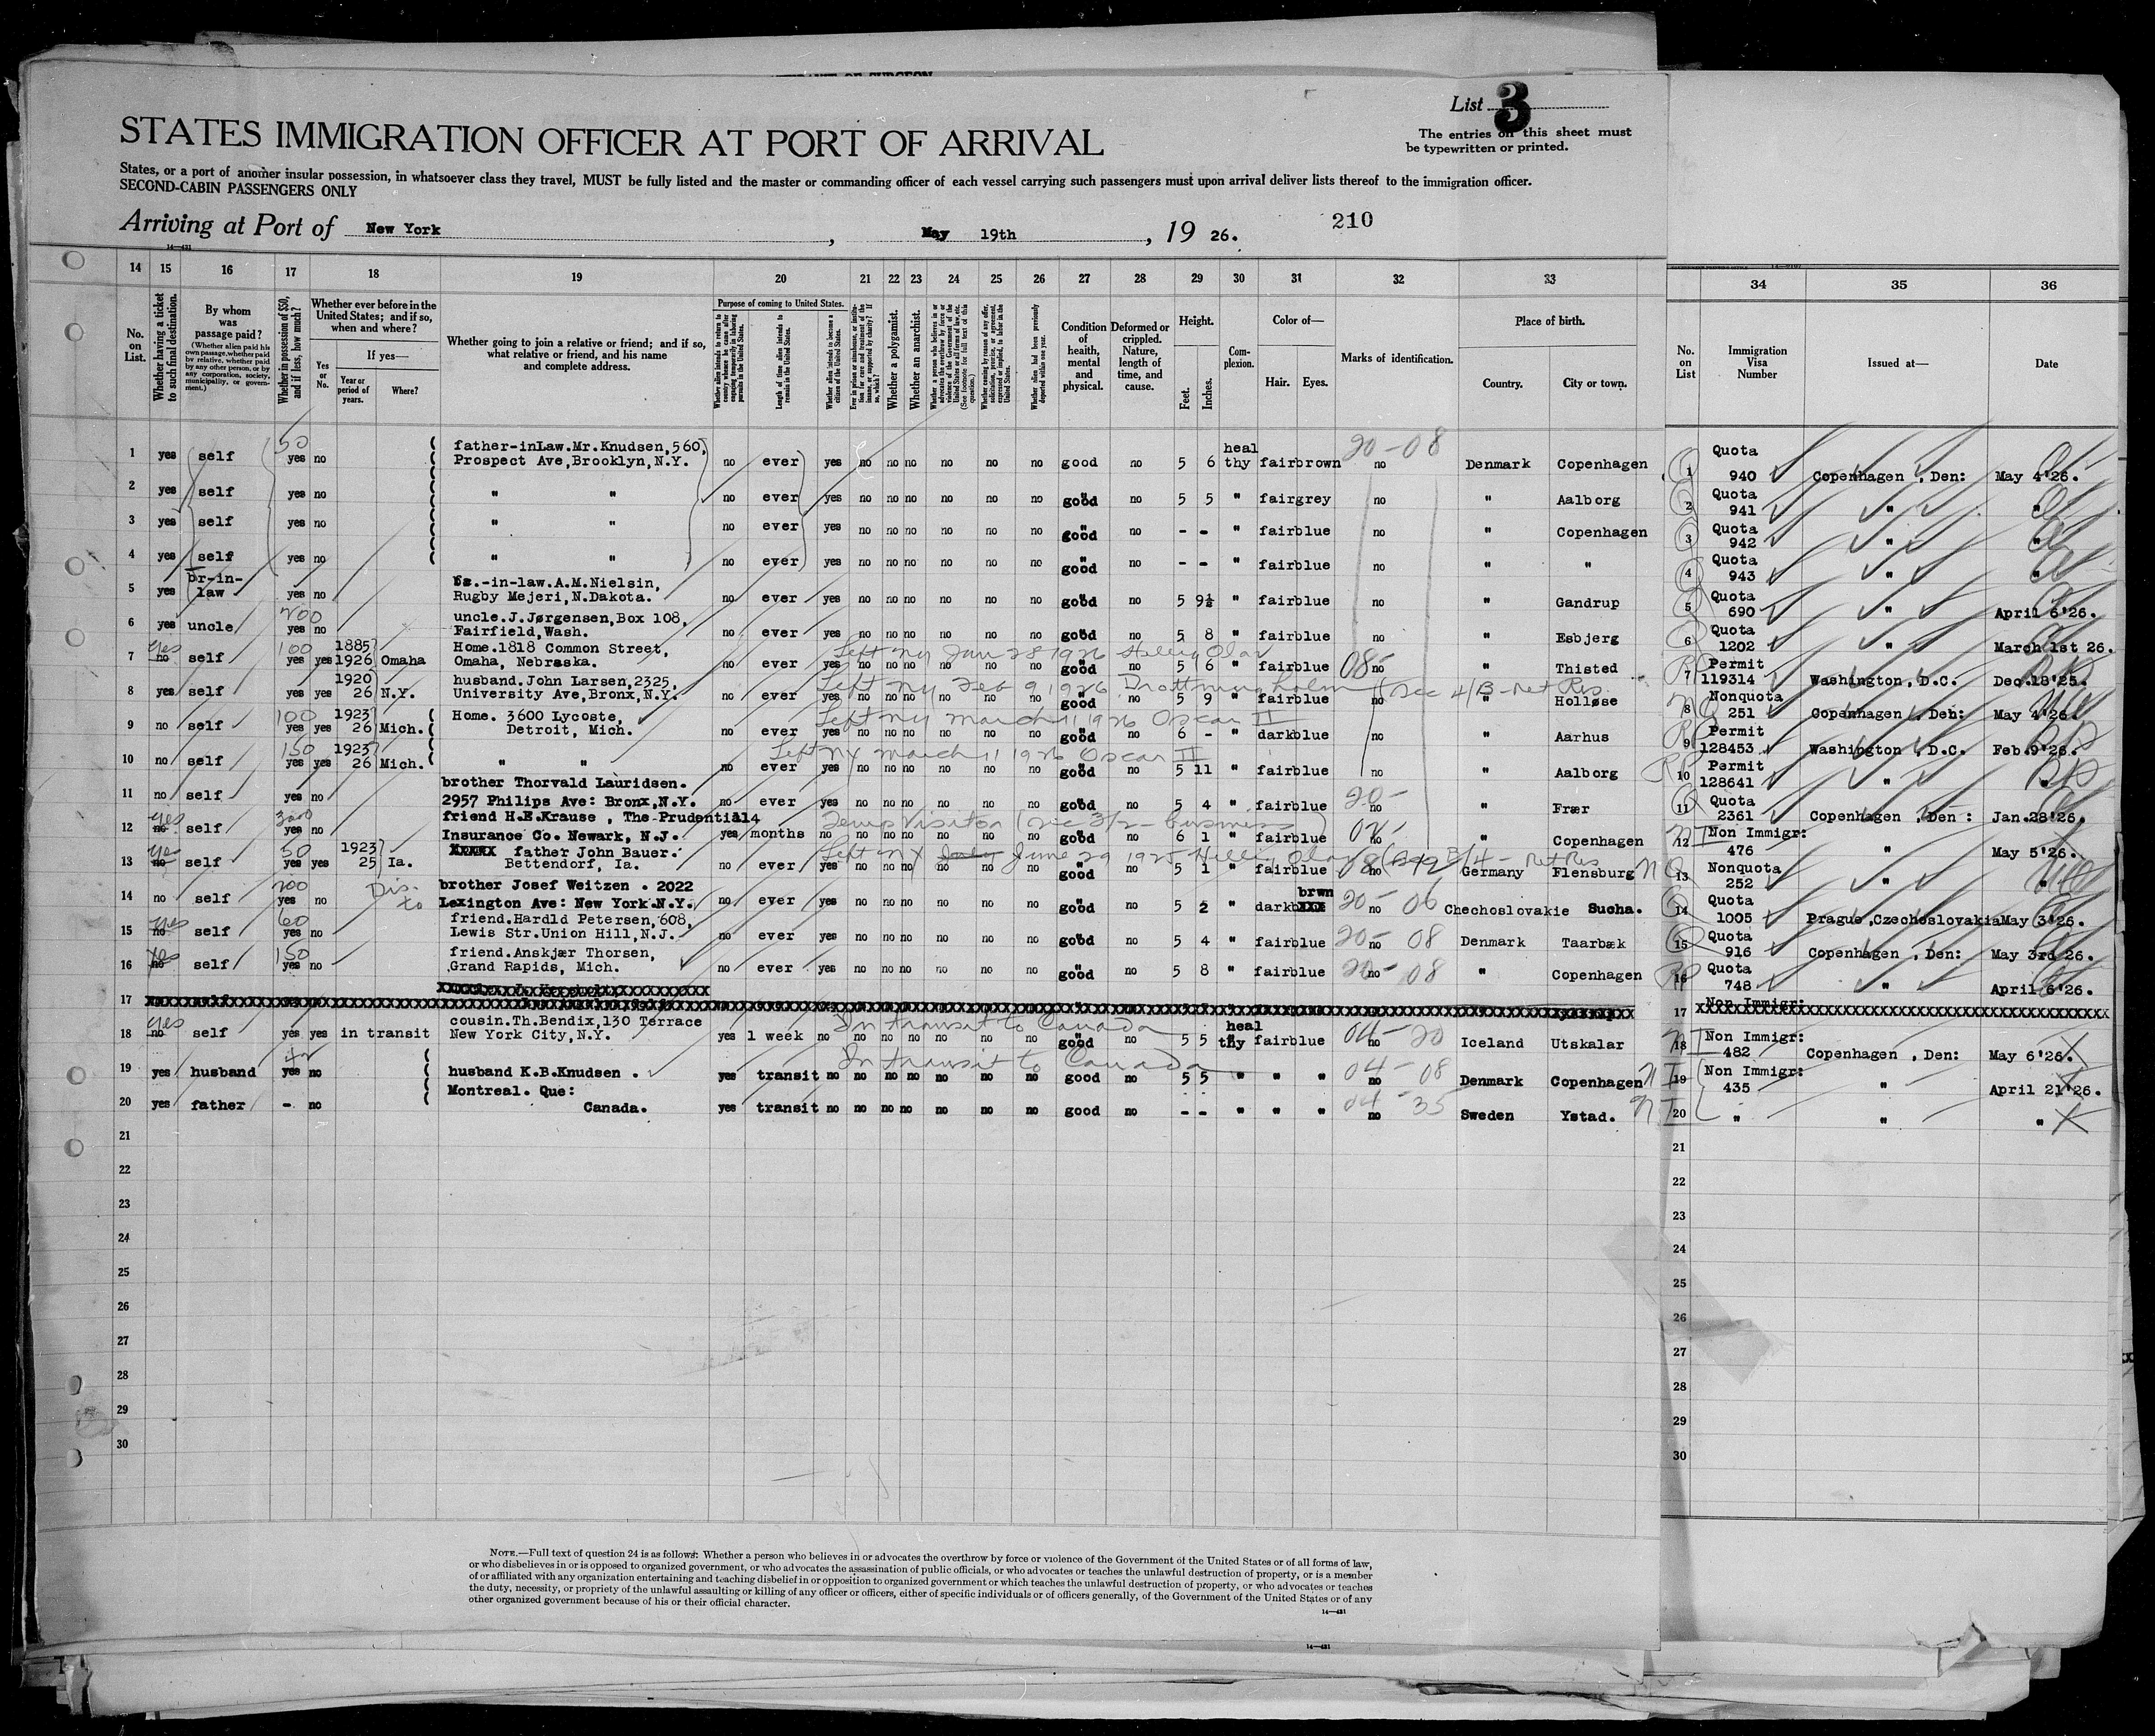 List 3
The entries on this sheet must
be typewritten or printed.
STATES IMMIGRATION OFFICER AT PORT OF ARRIVAL
States, or a port of another insular possession, in whatsoever class they travel, MUST be fully listed and the master or commanding officer of each vessel carrying such passengers must upon arrival deliver lists thereof to the immigration officer.
SECOND-CABIN PASSENGERS ONLY
Arriving at Port of New York, May 19th, 19 26. 210
14—431
14 15 16 17 18 19 20 21 22 23 24 25 26 27 28 29 30 31 32 33 34 35 36
No. on List.
Whether having a ticket to such final destination.
By whom was passage paid?
(Whether alien paid his own passage, whether paid by relative, whether paid by any other person, or by any corporation, society, municipality, or government.)
Whether in possession of $50, and if less, how much?
Whether ever before in the United States; and if so, when and where?
Yes or No.
If yes—
Year or period of years.
Where?
Whether going to join a relative or friend; and if so, what relative or friend, and his name and complete address.
Purpose of coming to United States.
Length of time alien intends to remain in the United States.
Whether alien intends to become a citizen of the United States.
Whether a polygamist.
Whether an anarchist.
Whether alien had been previously deported within one year.
Condition of health, mental and physical.
Deformed or crippled. Nature, length of time, and cause.
Height.
Feet. Inches.
Complexion.
Color of—
Hair. Eyes.
Marks of identification.
Place of birth.
Country. City or town.
No. on List
Immigration Visa Number
Issued at—
Date
1 yes self 50 yes no father-inLaw.Mr.Knudsen,560, Prospect Ave,Brooklyn,N.Y. no ever yes no no no no no no good no 5 6 healthy fair brown 20-08 no Denmark Copenhagen 1 Quota 940 Copenhagen, Den: May 4'26.
2 yes self yes no " " no ever yes no no no no no no good no 5 5 " fair grey no " Aalborg 2 Quota 941 " "
3 yes self yes no " " no ever yes no no no no no no good no - - " fair blue no " Copenhagen 3 Quota 942 " "
4 yes self yes no " " no ever yes no no no no no no good no - - " fair blue no " " 4 Quota 943 " "
5 yes br-in-law yes no br.-in-law.A.M.Nielsin, Rugby Mejeri,N.Dakota. no ever yes no no no no no no good no 5 9½ " fair blue no " Gandrup 5 Quota 690 " April 6'26.
6 yes uncle 200 yes no uncle.J.Jørgensen,Box 108, Fairfield,Wash. no ever yes no no no no no no good no 5 8 " fair blue no " Esbjerg 6 Quota 1202 " March 1st 26.
7 yes no self 100 yes yes 1885 1926 Omaha Home.1818 Common Street, Omaha, Nebraska. no ever yes no no no no no no good no 5 6 " fair blue 08- no " Thisted 7 Permit 119314 Washington, D.C. Dec.18'25.
Left NY Jan 28 1926 Hellig Olav
8 yes self yes yes 1920 26 N.Y. husband.John Larsen,2325, University Ave,Bronx,N.Y. no ever yes no no no no no no good no 5 9 " fair blue no " Holløse 8 Nonquota 251 Copenhagen, Den: May 4'26.
Left NY Feb 9 1926 Drottningholm (Sec 4/B-Ret Res.
9 no self 100 yes yes 1923 26 Mich. Home. 3600 Lycoste, Detroit, Mich. no ever yes no no no no no no good no 6 - " dark blue no " Aarhus 9 Permit 128453 Washington, D.C. Feb.9'26.
Left NY March 11 1926 Oscar II
10 no self 150 yes yes 1923 26 Mich. " " no ever yes no no no no no no good no 5 11 " fair blue no " Aalborg 10 Permit 128641 " "
Left NY March 11 1926 Oscar II
11 no self yes no brother Thorvald Lauridsen. 2957 Philips Ave: Bronx,N.Y. no ever yes no no no no no no good no 5 4 " fair blue 20- no " Frær 11 Quota 2361 Copenhagen, Den: Jan.28'26.
12 yes no self 300 yes no friend H.E.Krause, The Prudential Insurance Co. Newark, N.J. yes 4 months no no no no no no no good no 6 1 " fair blue no " Copenhagen 12 Non Immigr: 476 " May 5'26.
Temp Visitor (Sec 3/2- business)
13 yes no self 50 yes yes 1923 25 Ia. XXXXX father John Bauer. Bettendorf, Ia. no ever yes no no no no no no good no 5 1 " fair blue no Germany Flensburg 13 Nonquota 252 " "
Left NY July June 29 1925 Hellig Olav (Sec 4 - Ret Res
14 no self 200 yes no Dis. to brother Josef Weitzen. 2022 Lexington Ave: New York.N.Y. no ever yes no no no no no no good no 5 2 " dark brwn XXX 20-06 no Chechoslovakie Sucha. 14 Quota 1005 Prague,Czechoslovakia May 3'26.
15 yes no self 60 yes no friend.Hardld Petersen,608, Lewis Str.Union Hill,N.J. no ever yes no no no no no no good no 5 4 " fair blue 20-08 no Denmark Taarbæk 15 Quota 916 Copenhagen, Den: May 3rd 26.
16 yes no self 150 yes no friend.Anskjær Thorsen, Grand Rapids, Mich. no ever yes no no no no no no good no 5 8 " fair blue 20-08 no " Copenhagen 16 Quota 748 " April 6'26.
17 17 Non Immigr:
18 yes no self yes yes in transit cousin.Th.Bendix,130 Terrace New York City,N.Y. yes 1 week no no no no no no no good no 5 5 healthy fair blue 04-20 no Iceland Utskalar 18 Non Immigr: 482 Copenhagen, Den: May 6'26.
In transit to Canada
19 yes husband yes no husband K.B.Knudsen. yes transit no no no no no no no good no 5 5 " " " 04-08 no Denmark Copenhagen 19 Non Immigr: 435 " April 21'26.
In transit to Canada
20 yes father - no Montreal. Que: Canada. yes transit no no no no no no no good no - - " " " 04-35 no Sweden Ystad. 20 " " "
21 21
22 22
23 23
24 24
25 25
26 26
27 27
28 28
29 29
30 30
NOTE.—Full text of question 24 is as follows: Whether a person who believes in or advocates the overthrow by force or violence of the Government of the United States or of all forms of law,
or who disbelieves in or is opposed to organized government, or who advocates the assassination of public officials, or who advocates or teaches the unlawful destruction of property, or is a member
of or affiliated with any organization entertaining and teaching disbelief in or opposition to organized government or which teaches the unlawful destruction of property, or who advocates or teaches
the duty, necessity, or propriety of the unlawful assaulting or killing of any officer or officers, either of specific individuals or of officers generally, of the Government of the United States or of any
other organized government because of his or their official character.
14—431
14—431